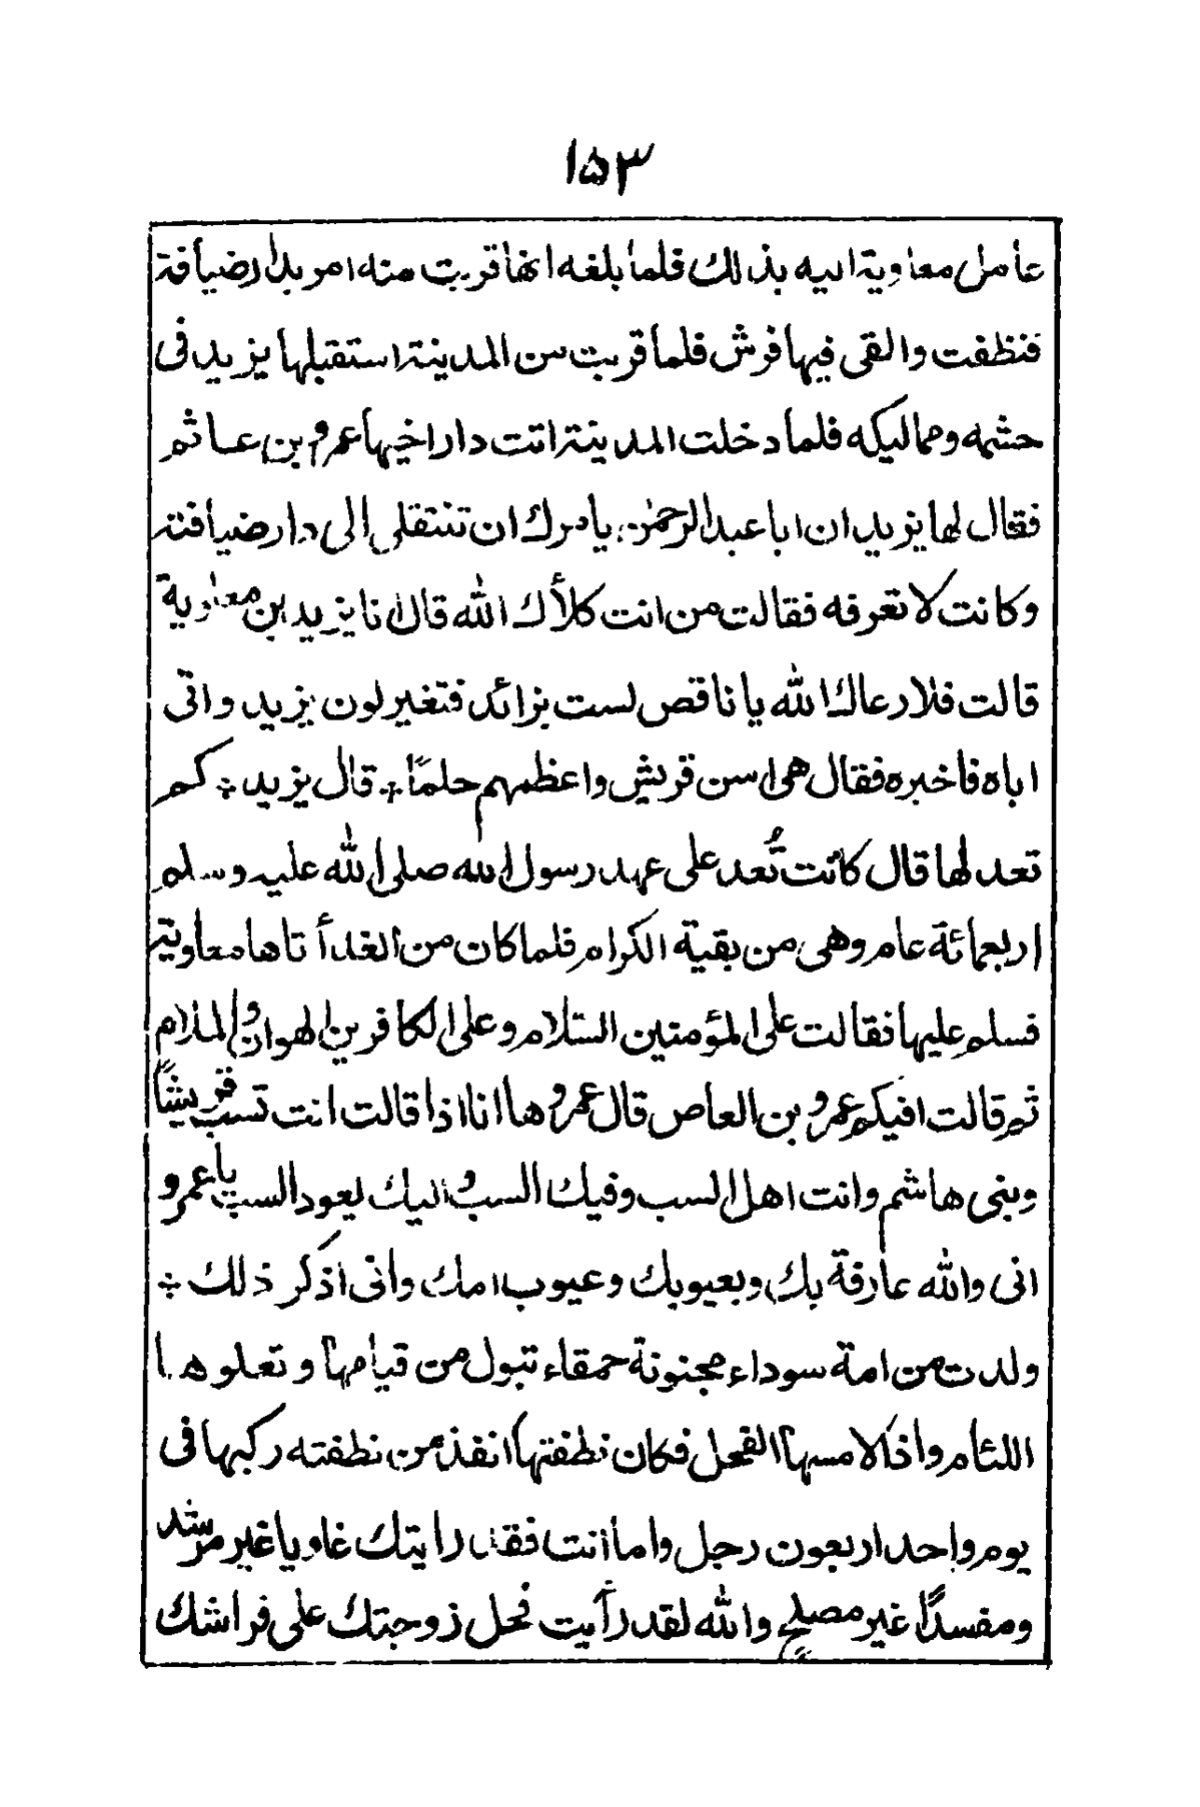 ١٥٣
عامل معاوية اليه بذلك فلما بلغه انها قربت منه امر بدار ضيافة
فنظفت والقى فيها فرش فلما قربت من المدينة استقبلها يزيد فى
حشمه ومماليكه فلما دخلت المدينة اتت دار اخيها عمرو بن عاثم
فقال لها يزيد ان ابا عبد الرحمٰن يامرك ان تنتقلى الى دار ضيافته
وكانت لا تعرفه فقالت من انت كلأك الله قال انا يزيد بن معاوية
قالت فلا رعاك الله يا ناقص لست بزائد فتغير لون يزيد واتى
اباه فاخبره فقال هى اسن قريش واعظمهم حلمًا ÷ قال يزيد ÷ كم
تعد لها قال كانت تُعد على عهد رسول الله صلى الله عليه وسلم
اربعمائة عام وهى من بقية الكرام فلما كان من الغد أتاها معاوية
فسلم عليها فقالت على المؤمنين السّلام وعلى الكافرين الهوان والملام
ثم قالت افيكم عمرو بن العاص قال عمرو ها انا اذا قالت انت تسب قريشًا
وبنى هاشم وانت اهل السب وفيك السب واليك يعود السب يا عمرو
انى والله عارفة بك وبعيوبك وعيوب امك وانى اذكر ذلك ÷
ولدت من امة سوداء مجنونة حمقاء تبول من قيامها وتعلوها
اللئام واذا لامسها الفحل فكان نطفتها انفذ من نطفته ركبها فى
يوم واحد اربعون رجل واما أنت فقد رايتك غاويا غير مرشد
ومفسدًا غير مصلح والله لقد رأيت فحل زوجتك على فراشك